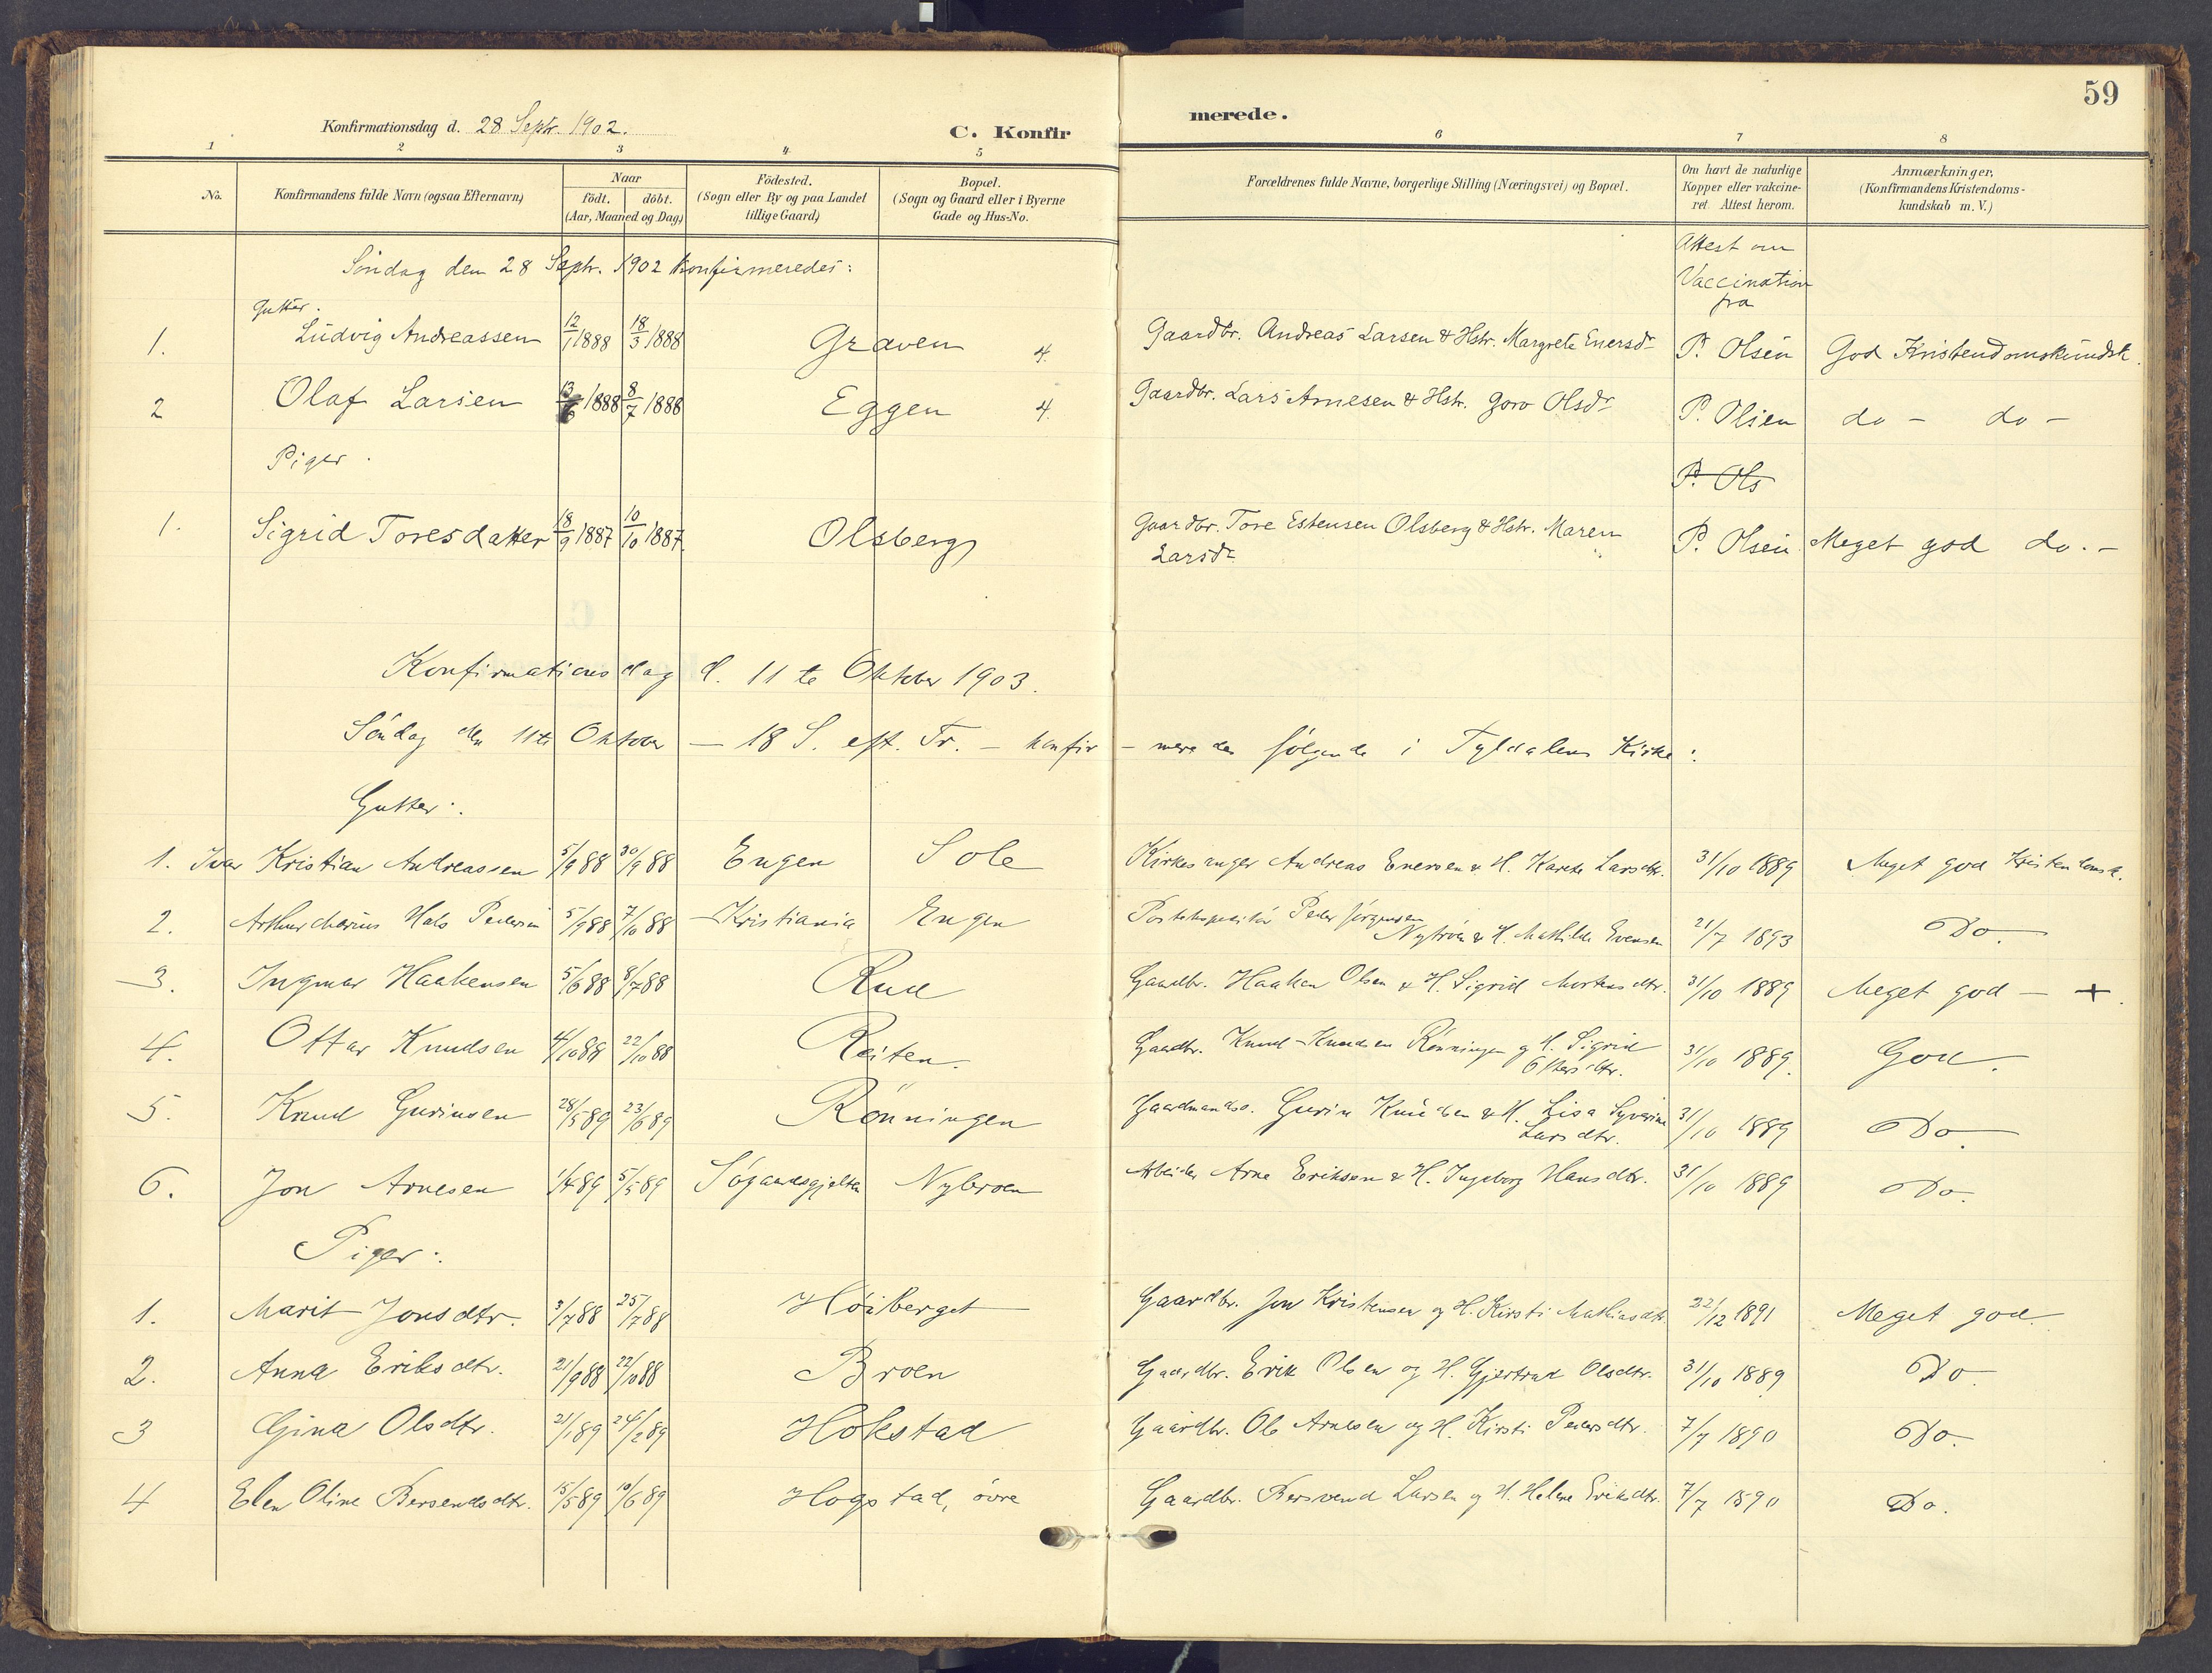 59
Konfirmationsdag d. 28 Septr. 1902.
C. Konfir merede.
1 2 3 4 5 6 7 8
No. Konfirmandens fulde Navn (ogsaa Efternavn) Naar födt. döbt. (Aar, Maaned og Dag) Födested. (Sogn eller By og paa Landet tillige Gaard) Bopæl. (Sogn og Gaard eller i Byerne Gade og Hus-No. Forældrenes fulde Navne, borgerlige Stilling (Næringsvei) og Bopæl. Om havt de naturlige Kopper eller vakcineret. Attest herom. Anmærkninger, (Konfirmandens Kristendomskundskab m. V.)
Attest om
Söndag den 28 Septr. 1902 konfirmeredes:
Vaccination
fra
Gutter.
1. Ludvig Andreassen 12/1 1888 18/3 1888 Graven 4. Gaardbr. Andreas Larsen & Hstr. Margrete Enersdr P. Olsen God Kristendomskundsk.
2 Olaf Larsen 13/6 1888 8/7 1888 Eggen 4. Gaardbr. Lars Arnesen & Hstr. Goro Olsdr P. Olsen do - do -
Piger.
P. Ols
1. Sigrid Toresdatter 18/9 1887 10/10 1887 Olsberg Gaardbr. Tore Estensen Olsberg & Hstr. Maren
Larsdr P. Olsen Meget god do. -
Konfirmationsdag d. 11te Oktober 1903.
Söndag den 11te Oktober - 18 S. eft. Tr. - konfir - meredes følgende i Tyldalens Kirke:
Gutter:
1. Ivar Kristian Andreassen 5/9 88 30/9 88 Engen Sole Kirkesanger Andreas Enersen & H. Karete Larsdtr. 31/10 1889 Meget god Kristendomsk.
2. Arthur Marius Hals Pedersen 5/9 88 7/10 88 Kristiania Engen Postekspeditör Peder Jörgensen
Nytröen & H. Mathilde Evensen 21/7 1893 Do.
3. Ingmar Haakensen 5/6 88 8/7 88 Rud Gaardbr. Haaken Olsen & H. Sigrid Mortensdtr. 31/10 1889 Meget god - +.
4. Ottar Knudsen 4/10 88 22/10 88 Reiten. Gaardbr. Knud Knudsen Rönningen og H. Sigrid
Ottersdtr. 31/10 1889. God.
5. Knud Gurinsen 28/5 89 23/6 89 Rönningen Gaardmands. Gurin Knudsen & H. Lisa Syverine
Larsdtr. 31/10 1889 Do.
6. Jon Arnesen 1/4 89 5/5 89 Sögaardsgjelten Nybroen Arbeider Arne Eriksen & H. Ingeborg Hansdtr. 31/10 1889 Do.
Piger:
1. Marit Jonsdtr. 3/7 88 25/7 88 Höiberget Gaardbr. Jon Kristensen og H. Kirsti Mathiasdtr. 22/12 1891 Meget god.
2. Anna Eriksdtr. 21/9 88 22/10 88 Broen Gaardbr. Erik Olsen og H. Gjertrud Olsdtr. 31/10 1889 Do.
3 Gina Olsdtr. 21/1 89 24/2 89 Hokstad Gaardbr. Ole Arnesen og H. Kirsti Pedersdtr. 7/7 1890 Do.
4 Elen Oline Bersendsdtr. 15/5 89 10/6 89 Hogstad, övre Gaardbr. Bersvend Larsen og H. Helene Eriksdtr. 7/7 1890 Do.